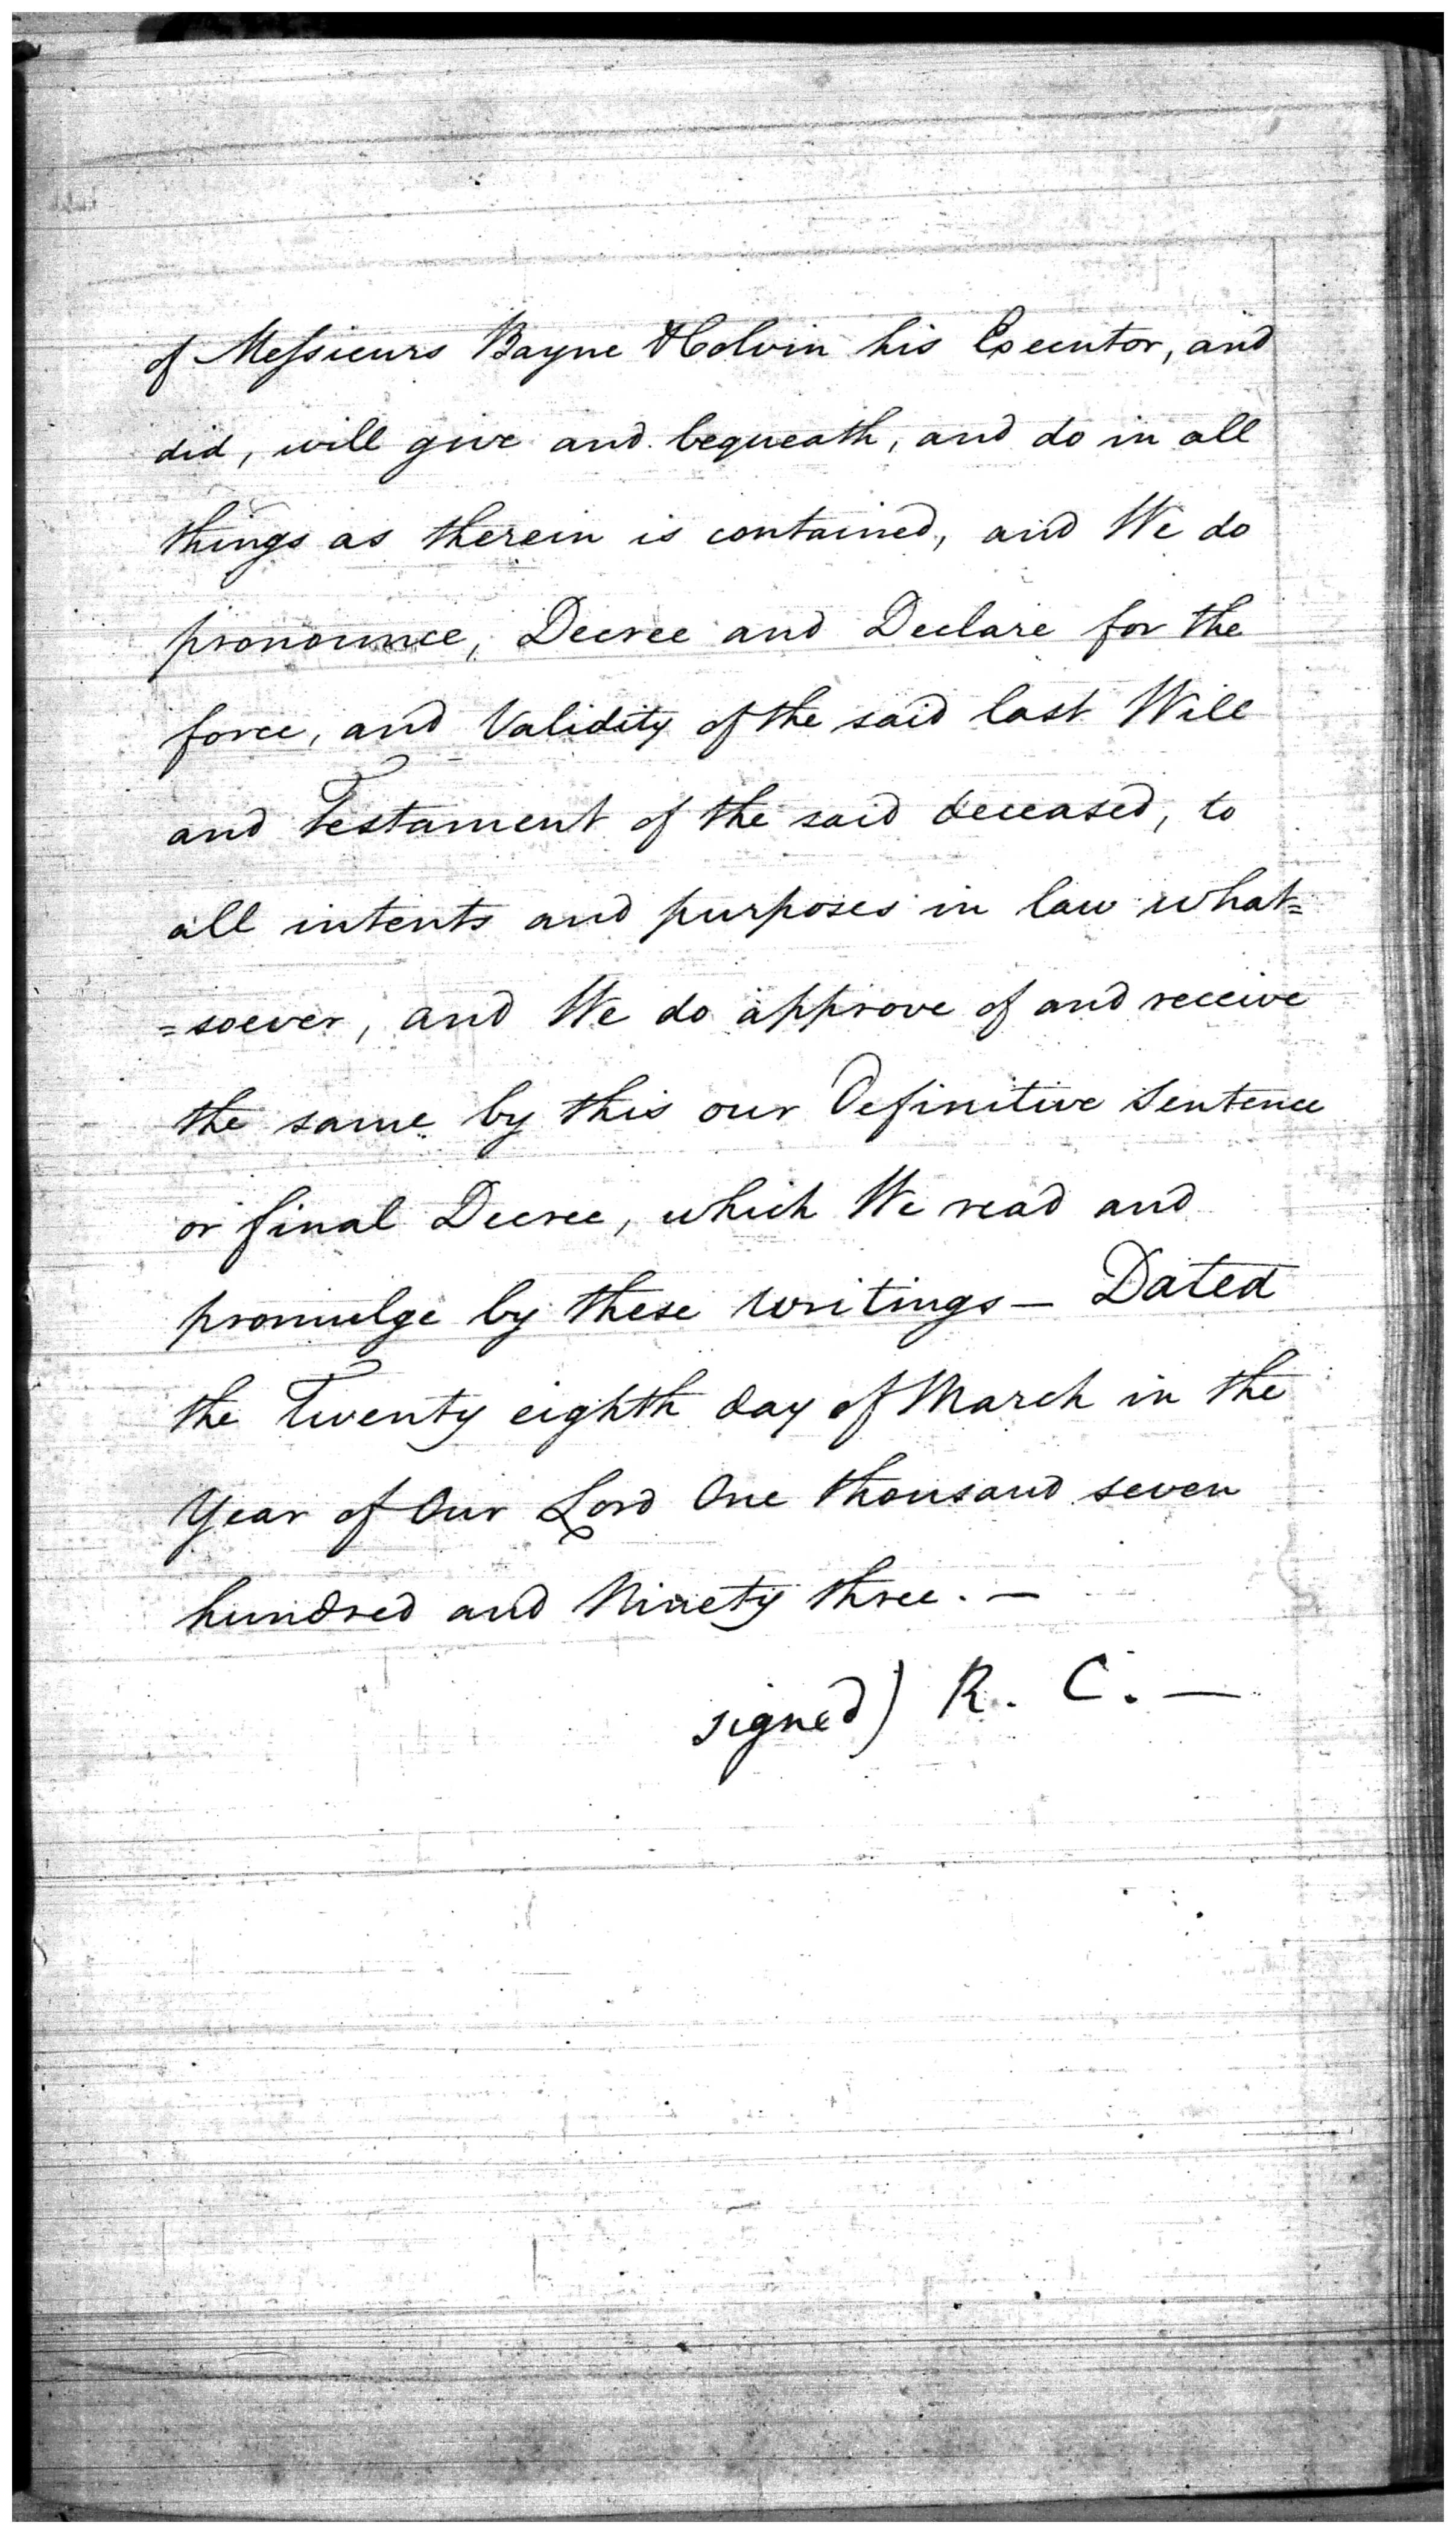 of Meſsieurs Bayne & Colvin his Executor, and
did, will give and bequeath, and do in all
things as therein is contained, and We do
pronounce, Decree and Declare for the
force, and Validity of the said last Will
and Testament of the said deceased, to
all intents and purposes in law what=
=soever, and We do approve of and receive
the same by this our Definitive Sentence
or final Decree, which We read and
promulge by these writings — Dated
the Twenty eighth day of March in the
Year of Our Lord One thousand seven
hundred and Ninety three. —
signed) R. C. —